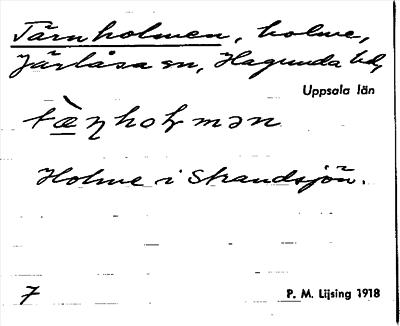 Tärnholmen, holme,
Järlåsa sn, Hagunda hd,
Uppsala län
Holme i Strandsjön.
7
P. M. Lijsing 1918